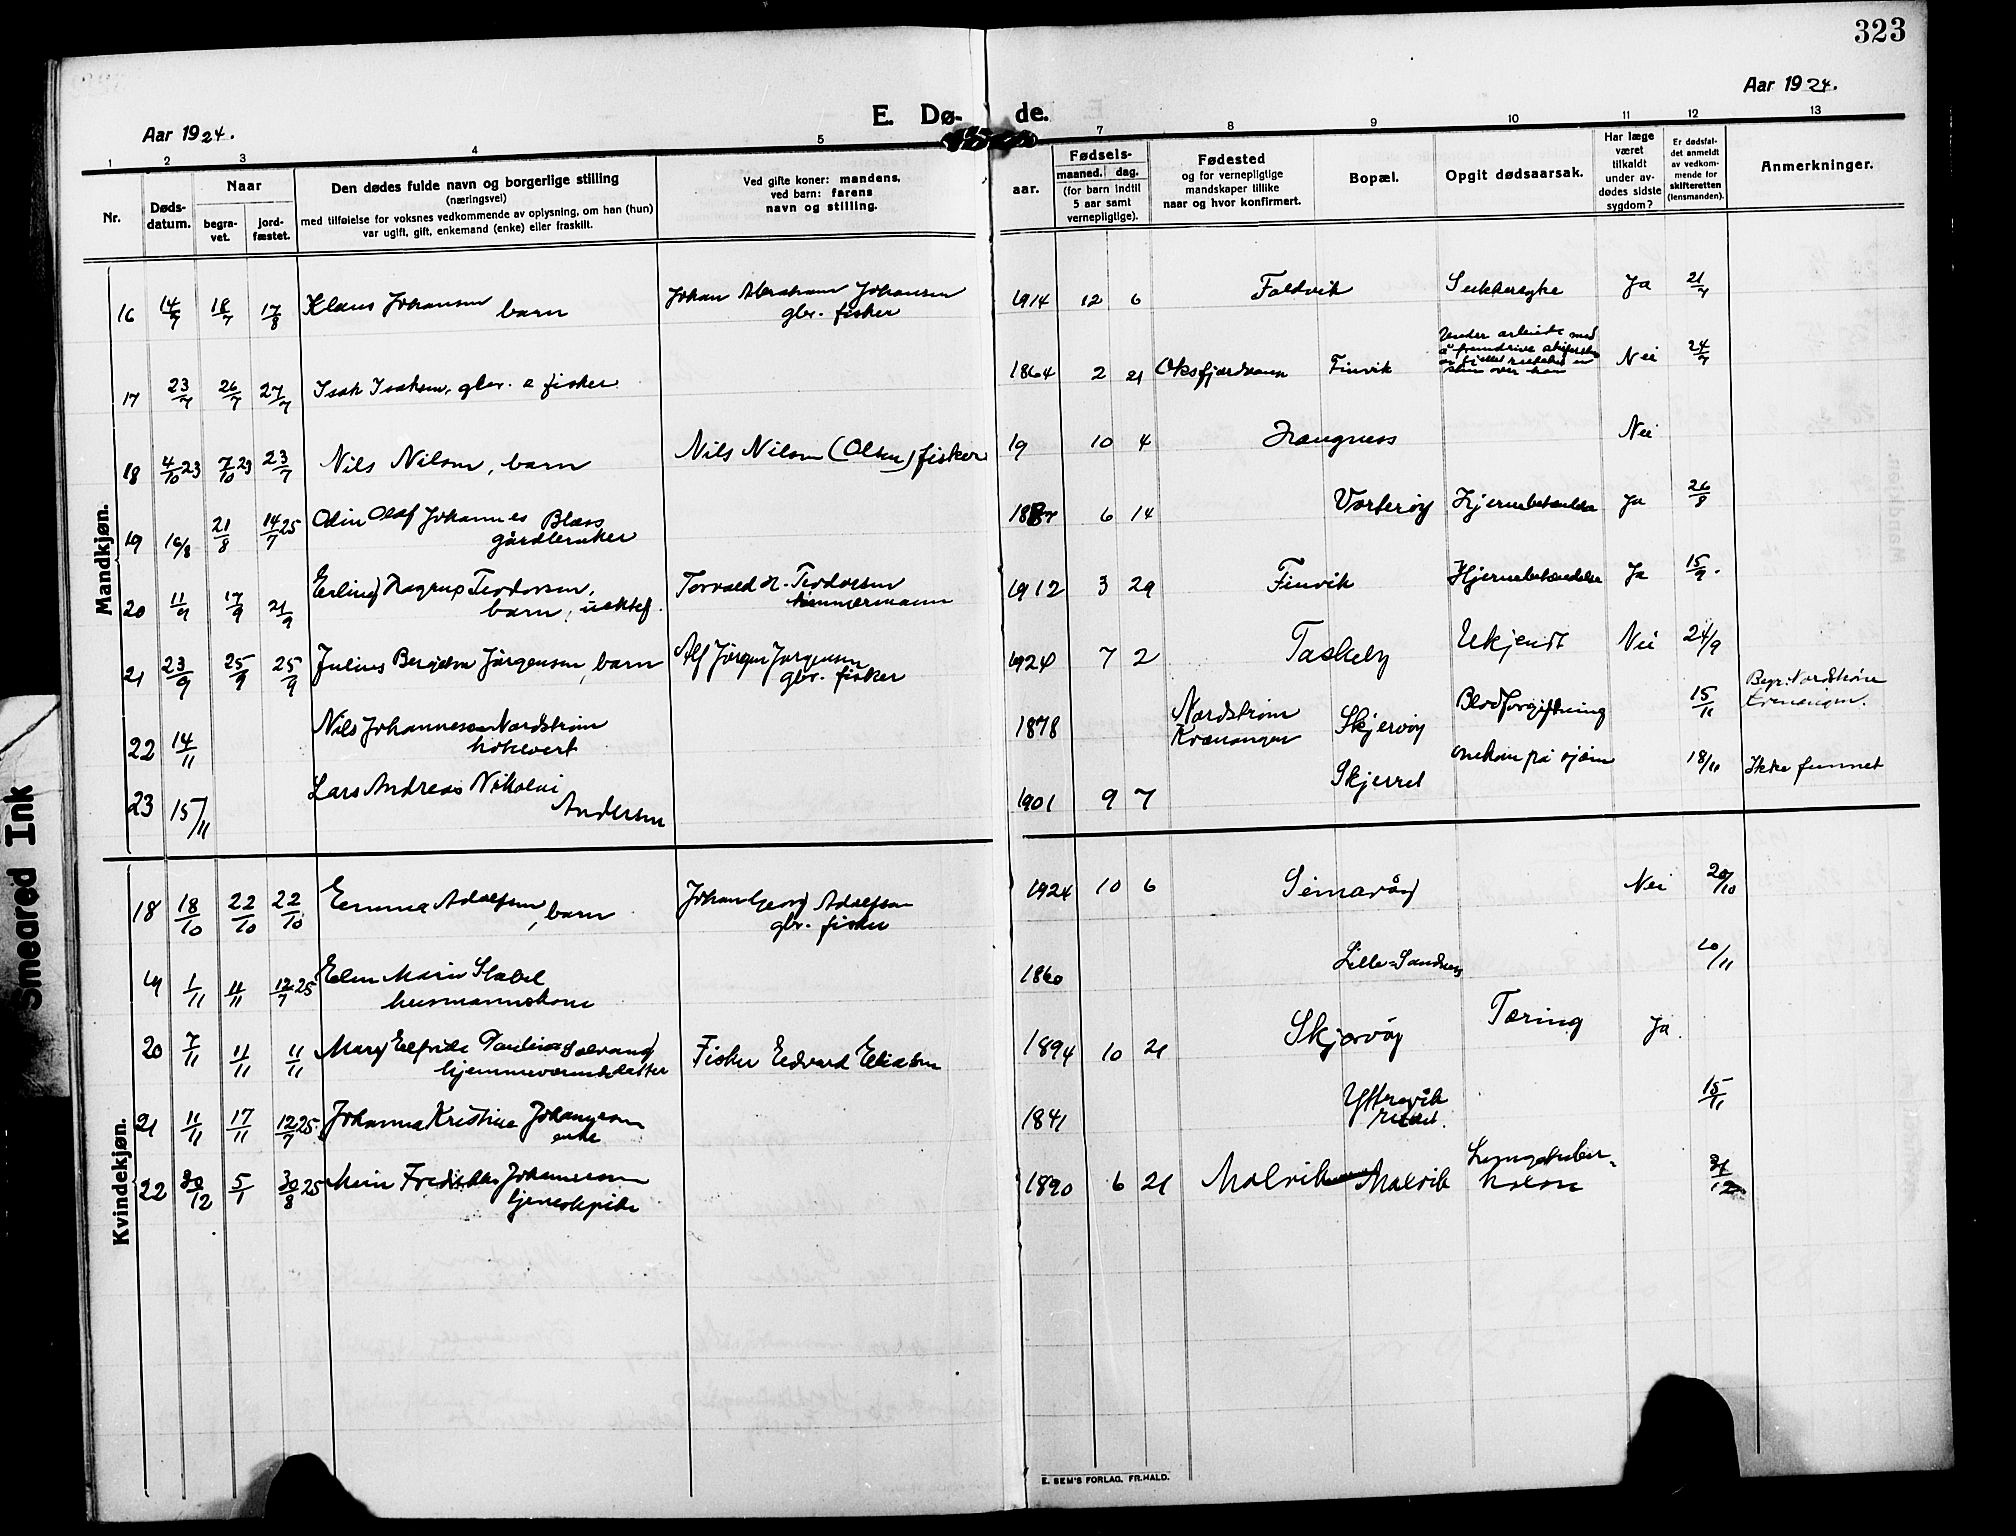 323
Aar 1924.
Aar 1924.
E. Dø- de.
1 2 3 4 5 7 8 9 10 11 12 13
Nr.
Døds-
datum.
Naar
begra-
vet.
jord-
fæstet.
Den dødes fulde navn og borgerlige stilling
(næringsvei)
med tilføielse for voksnes vedkommende av oplysning, om han (hun)
var ugift, gift, enkemand (enke) eller fraskilt.
Ved gifte koner: mandens,
ved barn: farens
navn og stilling.
aar.
Fødsels-
maaned. dag.
(for barn indtil
5 aar samt
vernepligtige).
Fødested
og for vernepligtige
mandskaper tillike
naar og hvor konfirmert.
Bopæl.
Opgit dødsaarsak.
Har læge
været
tilkaldt
under av-
dødes sidste
sygdom?
Er dødsfal-
det anmeldt
av vedkom-
mende for
skifteretten
(lensmanden).
Anmerkninger.
Mandkjøn.
16 14/7 18/7 17/8 Klaus Johansen barn Johan Abraham Johansen
gbr. fisker 1914 12 6 Foldvik Sukkersyke Ja 21/7
17 23/7 26/7 27/7 Isak Isaksen, gbr. & fisker 1864 2 21 Oksfjordvann Finvik Under arbeide med
Nei 24/7
18 4/10 23 7/10 23 23/7 Nils Nilsen, barn Nils Nilsen (Olsen) fisker 19 10 4 Nei
19 16/8 21/8 14/7 25 Odin Olaf Johannes Blæss
gårdbruker 6 14 Vorterøy Hjernebetendelse Ja 26/8
20 11/9 17/9 21/9 Erling Hagrup Teodorsen,
barn, uektef. Torvald H. Teodorsen
tømmermann 1912 3 29 Finvik Hjernebetændelse Ja 15/9.
21 23/9 25/9 25/9 Julius Jørgensen, barn Alf Jørgen Jørgensen
gbr. fisker 1924 7 2 Taskeby Ukjendt Nei 24/9
22 14/11 Nils Johannesen Nordstrøm
1878 Nordstrøm
Kvænangen Skjervøy Blodforgiftning 15/11 Begr. Nordstrøm
Kvænangen.
23 15/11 Lars Andreas Nikolai
Andersen 1901 9 7 Skjerret omkom på sjøen 18/11 Ikke funnet
Kvindekjøn.
18 18/10 22/10 22/10 Emma Adolfsen, barn Johan Georg Adolfsen
gbr. fisker 1924 10 6 Nei 20/10
19 1/11 11/11 12/7 25 Elen Marie Stabel
husmannskone 1860 Lille-Sandnes 10/11
20 7/11 11/11 11/11 Mary Elfride
hjemmeværende datter Fisker Edvard Eliassen 1894 10 21 Skjervøy Tæring Ja.
21 11/11 17/11 12/7 25 Johanna Kristine Johannesen
enke 1841 15/11
22 30/12 5/1 30/8 25
tjenestepike 1890 6 21 Malvik Malvik Lungetuber-
kulose 31/12
E. SEM'S FORLAG, FR.HALD.
Smeared Ink